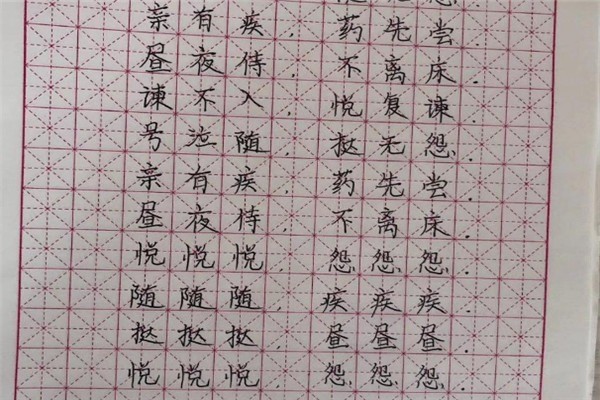 亲有疾,药先尝.
昼夜侍,不离床.
谏不入,悦复谏.
号泣随,挞无怨.
亲有疾,药先尝.
昼夜侍,不离床.
悦悦悦,怨怨怨.
随随随,疾疾疾.
挞挞挞,昼昼昼.
悦悦悦,怨怨怨.